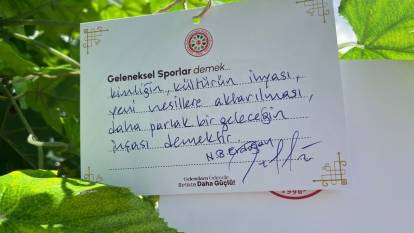 Geleneksel Sporlar demek...
kimliğin, kültürün ihyası,
yeni nesillere aktarılması,
daha parlak bir geleceğin
inşası demektir.
N.B Erdoğan
Gelenekten Geleceğe
Birlikte Daha Güçlü!